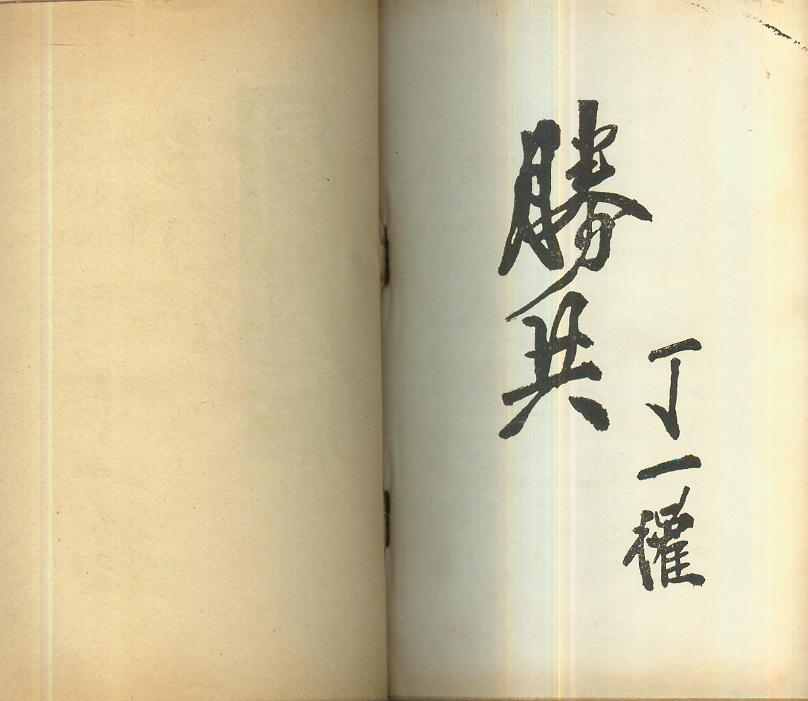 勝共
丁一權